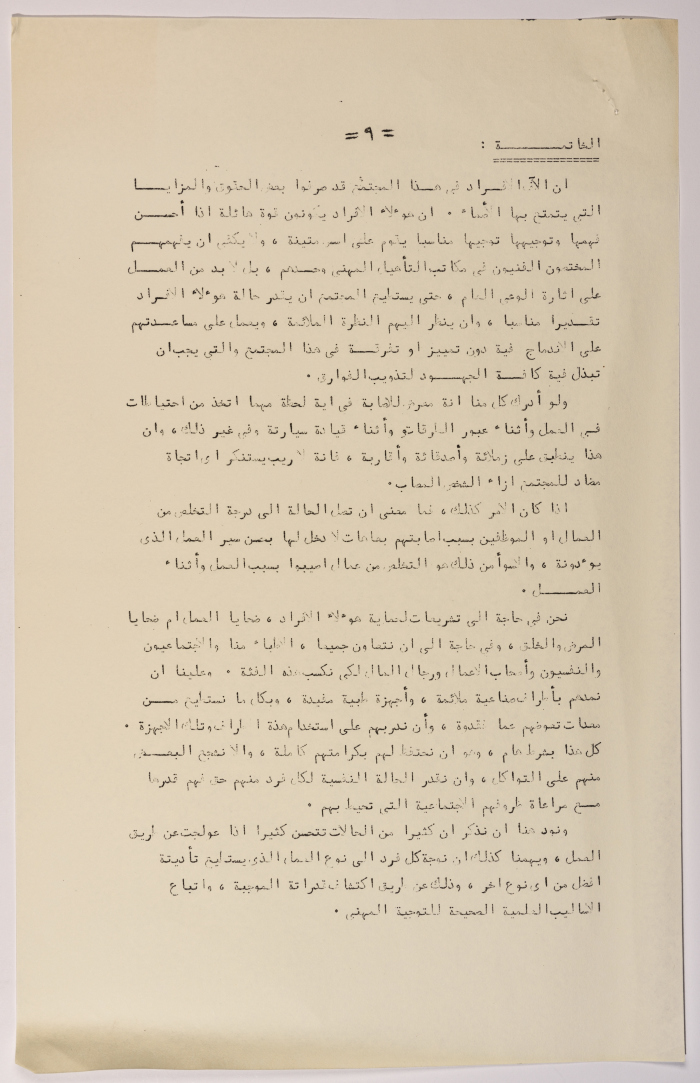 = ٩ =
الخاتمـــــــــة :
ان الآن افــراد فى هــذا المجتمع قد حرموا بعض الحقوق والمزايــا
التى يتمتع بها الأصحاء ٠ ان هوءلاء الافراد يكونون قوة هائلة اذا أحســن
فهمها وتوجيهها توجيها مناسبا يقوم على اسس متينة ، ولا يكفى ان يتفهمهــم
المختصون الفنيون فى مكاتب التأهيل المهنى وحــدهم ، بل لا بد من العمــل
على اثارة الوعى العام ، حتى يستطيع المجتمع ان يقدر حالة هوءلاء الافــراد
تقـديرا مناسبا ، وان ينظر اليهم النظرة الملائمة ، ويعمل على مساعــدتهم
على الاندماج فية دون تمييز او تفرقــة فى هذا المجتمع والتى يجب ان
تبذل فية كافــة الجهــود لتذويب الفوارق ٠
ولو أدرك كل منا انة معرض للاصابة فى اية لحظة مهما اتخذ من احتياطات
فــى العمل وأثناء عبور الطرقات وأثناء قيادة سيارتة وفى غير ذلك ، وان
هذا ينطبق على زملائة وأصدقائة وأقاربة ، فانة لاريب يستنكر اى اتجاة
مضاد للمجتمع ازاء الشخص المصاب ٠
اذا كان الامر كذلك ، فما معنى ان تصل الحالة الى درجة التخلص من
العمال او الموظفين بسبب اصابتهم بعاهات لا دخل لها بحسن سير العمل الذى
يوءدونة ، والاسوأ من ذلك هو التخلص من عمال اصيبوا بسبب العمل وأثناء
العمـــل ٠
نحن فى حاجة الى تشريعات لحماية هوءلاء الافراد ، ضحايا العمل ام ضحايا
المرض والخلق ، وفى حاجة الى ان نتعاون جميعا ، الاطباء منا والاجتماعيون
والنفسيون وأصحاب الاعمال ورجال المال لكى نكسب هذه الفئة ٠ وعلينا ان
نمدهم بأطراف صناعية ملائمة ، وأجهزة طبية مفيدة ، وبكل ما نستطيع مــن
معدات تعوضهم عما فقدوة ، وأن ندربهم على استخدام هذة الاطراف وتلك الاجهزة ٠
كل هذا بشرط هام ، وهو ان نحتفظ لهم بكرامتهم كاملة ، والا نشجع البعــض
منهم على التواكل ، وان نقدر الحالة النفسية لكل فرد منهم حق قدرها
مــع مراعاة ظروفهم الاجتماعية التى تحيط بهم ٠
ونود هنا ان نذكر ان كثيرا من الحالات تتحسن كثيرا اذا عولجت عن طريق
العمل ، ويهمنا كذلك ان نوجة كل فرد الى نوع العمل الذى يستطيع تأديتة
افضل من اى نوع اخر ، وذلك عن طريق اكتشاف قدراتة الموجبة ، واتباع
الاساليب العلمية الصحيحة للتوجية المهنى ٠